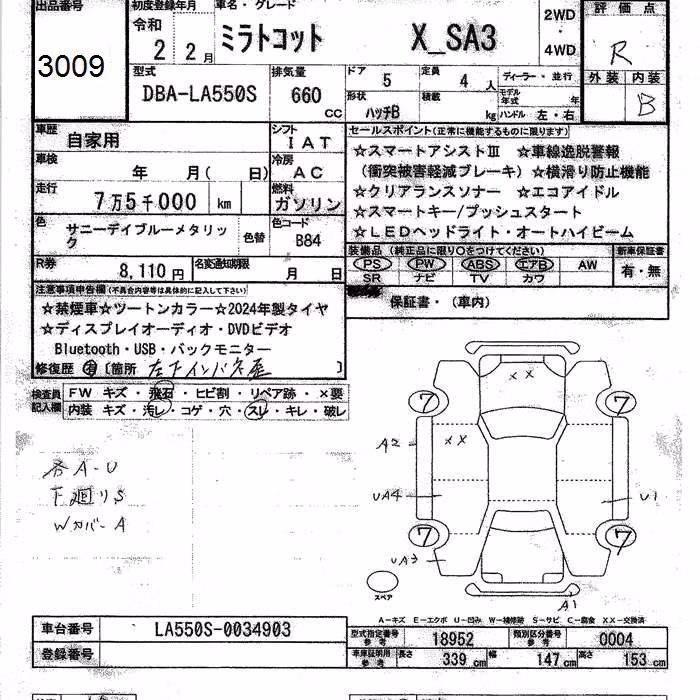 出品番号
3009
初度登録年月
令和
2 2月
車名・グレード
ミラトコット X_SA3
2WD
・
4WD
評価点
R
外装 内装
B
型式
DBA-LA550S
排気量
660
CC
ドア 5
定員 4 人
形状
ハッチB
積載
kg
ディーラー・並行
モデル年式 年
ハンドル 左・右
車歴 自家用
シフト IAT
車検 年 月( 日)
冷房 AC
走行 7万5千000 km
燃料 ガソリン
色 サニーデイブルーメタリック
色替
色コード B84
R券 8,110円
名変通知期限 月 日
セールスポイント(正常に機能するものに限ります)
☆スマートアシストⅢ ☆車線逸脱警報
(衝突被害軽減ブレーキ) ☆横滑り防止機能
☆クリアランスソナー ☆エコアイドル
☆スマートキー/プッシュスタート
☆LEDヘッドライト・オートハイビーム
装備品(純正品に限り○をつけてください)
PS PW ABS エアB AW
SR ナビ TV カワ
新車保証書
有・無
保証書・(車内)
注意事項申告欄(不具合内容等は具体的に記入して下さい)
☆禁煙車☆ツートンカラー☆2024年製タイヤ
☆ディスプレイオーディオ・DVDビデオ
Bluetooth・USB・バックモニター
修復歴 有 [箇所 左下インパネ ]
検査員記入欄
FW キズ・飛石・ヒビ割・リペア跡・×要
内装 キズ・汚レ・コゲ・穴・スレ・キレ・破レ
各A-U
下廻りS
Wカバー A
XX
7 7
A2 XX
UA4 U1
7 7
UA3
スペア
A1
A-キズ E-エクボ U-凹み W-補修跡 S-サビ C-腐食 XX-交換済
車台番号 LA550S-0034903
登録番号
型式指定番号 参考 18952
類別区分番号 参考 0004
車庫証明用 参考 長さ 339cm 幅 147cm 高さ 153cm